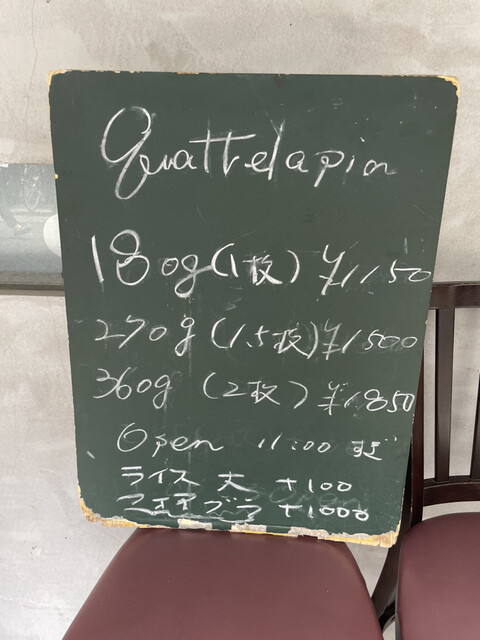 Quattrolapin
180g (1枚) ¥1150
270g (1.5枚) ¥1500
360g (2枚) ¥1850
Open 11:00 すぎ
ライス 大 +100
フォアグラ +1000